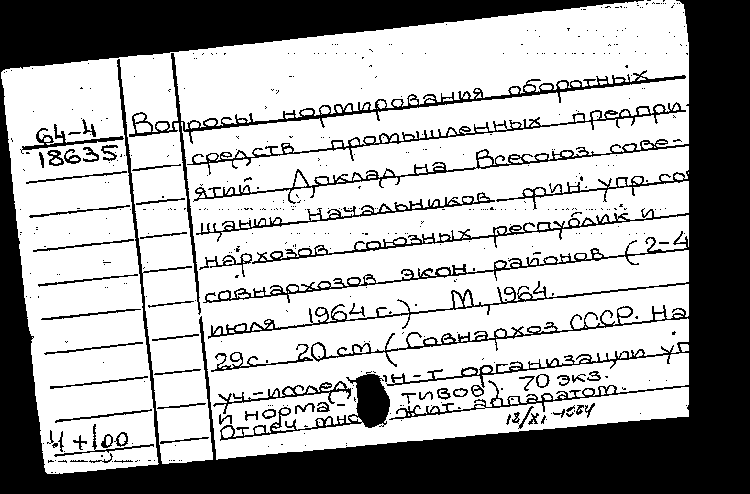 64-4
18635
Вопросы нормирования оборотных
средств промышленных предпри-
ятий. (Доклад на Всесоюз. сове-
щании начальников фин. упр. сов
нархозов союзных республик и
совнархозов экон. районов (2-4
июля 1964 г.). М., 1964.
29 с. 20 см. (Совнархоз СССР. На
уч.-исслед. ин-т организации уп
и норма- тивов). 70 экз.
Отпеч. множит. аппаратом.